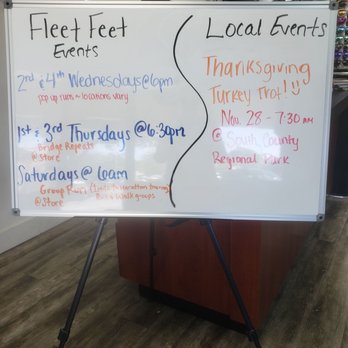 Fleet Feet
Events
2nd & 4th Wednesdays @ 6pm
pop up runs ~ locations vary
1st & 3rd Thursdays @ 6:30pm
Bridge Repeats
@ Store
Saturdays @
Group Run
@ Store
Run & Walk groups
Local Events
Thanksgiving
Turkey Trot!
Nov. 28 - 7:30 AM
@ South County
Regional Park